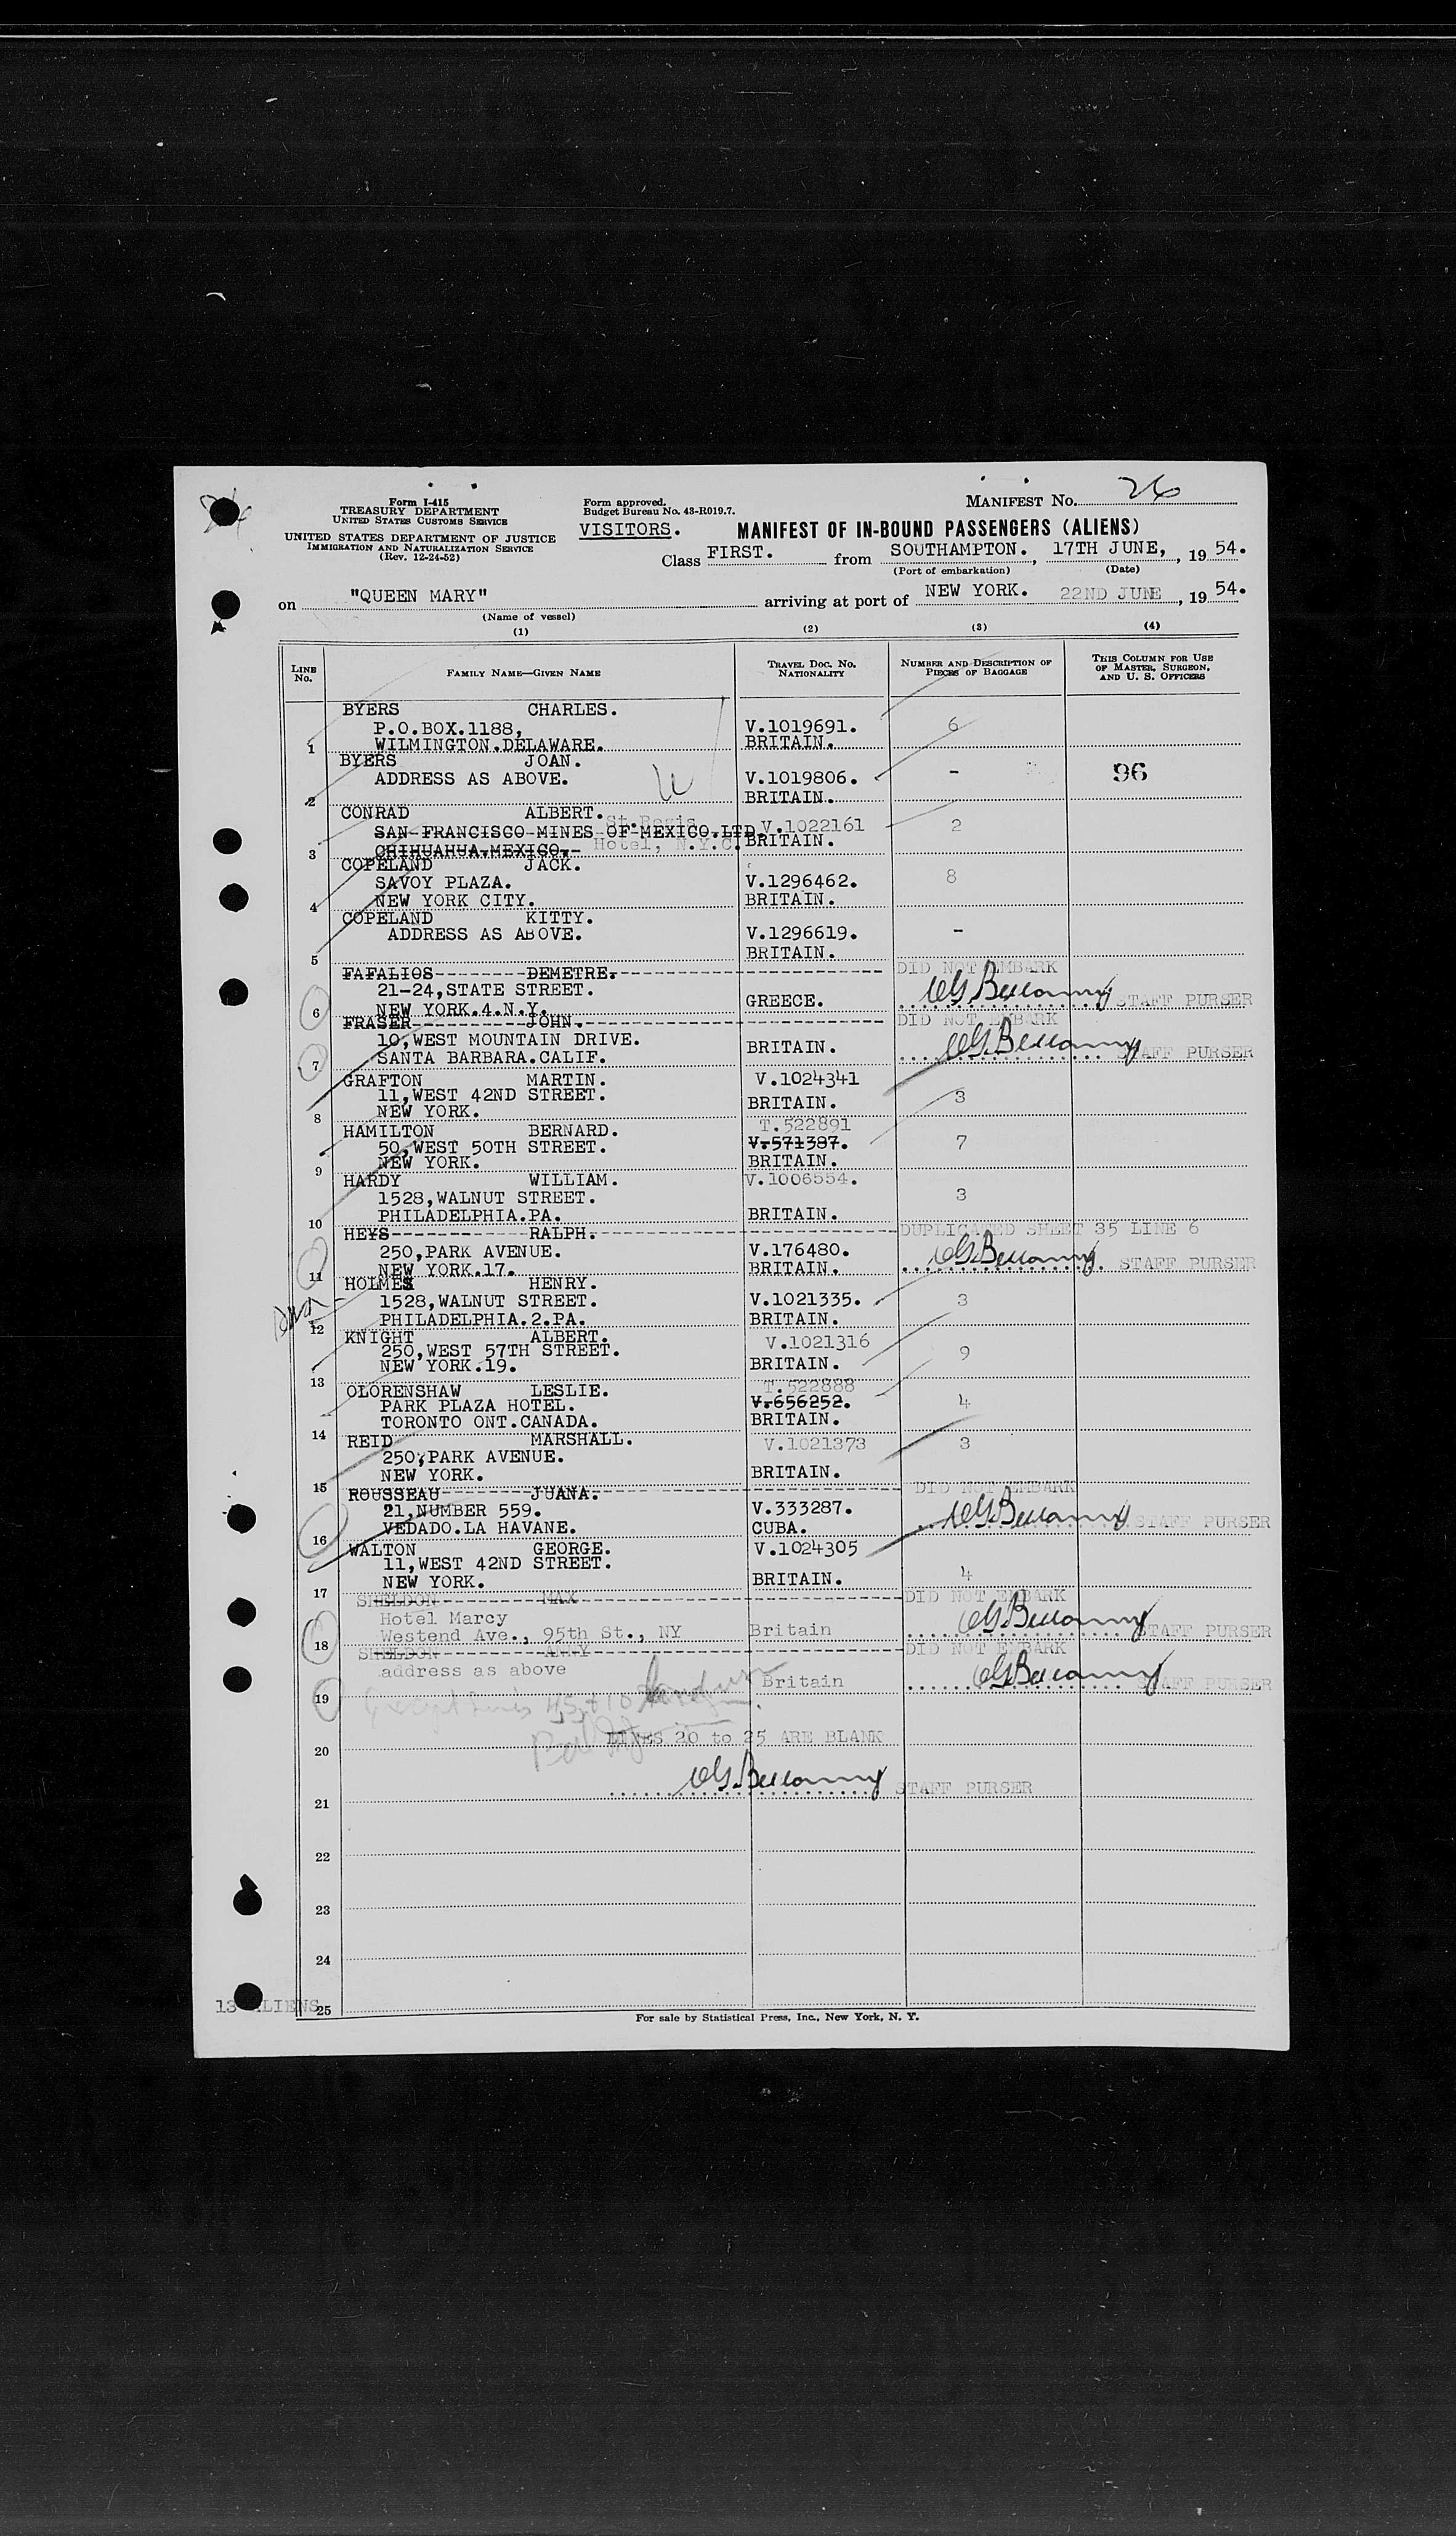 26
Form I-415
TREASURY DEPARTMENT
UNITED STATES CUSTOMS SERVICE
UNITED STATES DEPARTMENT OF JUSTICE
IMMIGRATION AND NATURALIZATION SERVICE
(Rev. 12-24-52)
Form approved.
Budget Bureau No. 43-R019.7.
MANIFEST No. 26
VISITORS. MANIFEST OF IN-BOUND PASSENGERS (ALIENS)
Class FIRST. from SOUTHAMPTON., 17TH JUNE, , 19 54.
(Port of embarkation) (Date)
on "QUEEN MARY" arriving at port of NEW YORK. 22ND JUNE , 19 54.
(Name of vessel)
(1) (2) (3) (4)
LINE No. FAMILY NAME—GIVEN NAME TRAVEL DOC. NO. NATIONALITY NUMBER AND DESCRIPTION OF PIECES OF BAGGAGE THIS COLUMN FOR USE OF MASTER, SURGEON, AND U. S. OFFICERS
BYERS CHARLES.
P.O.BOX.1188, V.1019691. 6
1 WILMINGTON.DELAWARE. BRITAIN.
BYERS JOAN.
ADDRESS AS ABOVE. V.1019806. - 96
2 BRITAIN.
CONRAD ALBERT. St.Regis
SAN FRANCISCO MINES OF MEXICO.LTD. V.1022161 2
3 CHIHUAHUA.MEXICO.- Hotel, N.Y.C. BRITAIN.
COPELAND JACK.
SAVOY PLAZA. V.1296462. 8
4 NEW YORK CITY. BRITAIN.
COPELAND KITTY.
ADDRESS AS ABOVE. V.1296619. -
5 BRITAIN.
FAFALIOS--------DEMETRE. DID NOT EMBARK
21-24,STATE STREET. GREECE. STAFF PURSER
6 NEW YORK.4.N.Y.
FRASER----------JOHN. DID NOT EMBARK
10,WEST MOUNTAIN DRIVE. BRITAIN. STAFF PURSER
7 SANTA BARBARA.CALIF.
GRAFTON MARTIN. V.1024341
11,WEST 42ND STREET. BRITAIN. 3
8 NEW YORK.
HAMILTON BERNARD. T.522891
50,WEST 50TH STREET. V.571387. 7
9 NEW YORK. BRITAIN.
HARDY WILLIAM. V.1006554.
1528,WALNUT STREET. 3
10 PHILADELPHIA.PA. BRITAIN.
HEYS------------RALPH. DUPLICATED SHEET 35 LINE 6
250,PARK AVENUE. V.176480. STAFF PURSER
11 NEW YORK.17. BRITAIN.
HOLMES HENRY.
1528,WALNUT STREET. V.1021335. 3
12 PHILADELPHIA.2.PA. BRITAIN.
KNIGHT ALBERT. V.1021316
250,WEST 57TH STREET. 9
13 NEW YORK.19. BRITAIN.
OLORENSHAW LESLIE. T.522888
PARK PLAZA HOTEL. V.656252. 4
14 TORONTO ONT.CANADA. BRITAIN.
REID MARSHALL. V.1021373 3
250,PARK AVENUE.
15 NEW YORK. BRITAIN.
ROUSSEAU--------JUANA. DID NOT EMBARK
21,NUMBER 559. V.333287. STAFF PURSER
16 VEDADO.LA HAVANE. CUBA.
WALTON GEORGE. V.1024305
11,WEST 42ND STREET. 4
17 NEW YORK. BRITAIN.
SHELDON---------MAX DID NOT EMBARK
Hotel Marcy
18 Westend Ave., 95th St., NY Britain STAFF PURSER
SHELDON---------ANNY DID NOT EMBARK
address as above Britain STAFF PURSER
19
20 LINES 20 to 25 ARE BLANK
21 STAFF PURSER
22
23
24
13 ALIENS 25
For sale by Statistical Press, Inc., New York, N. Y.